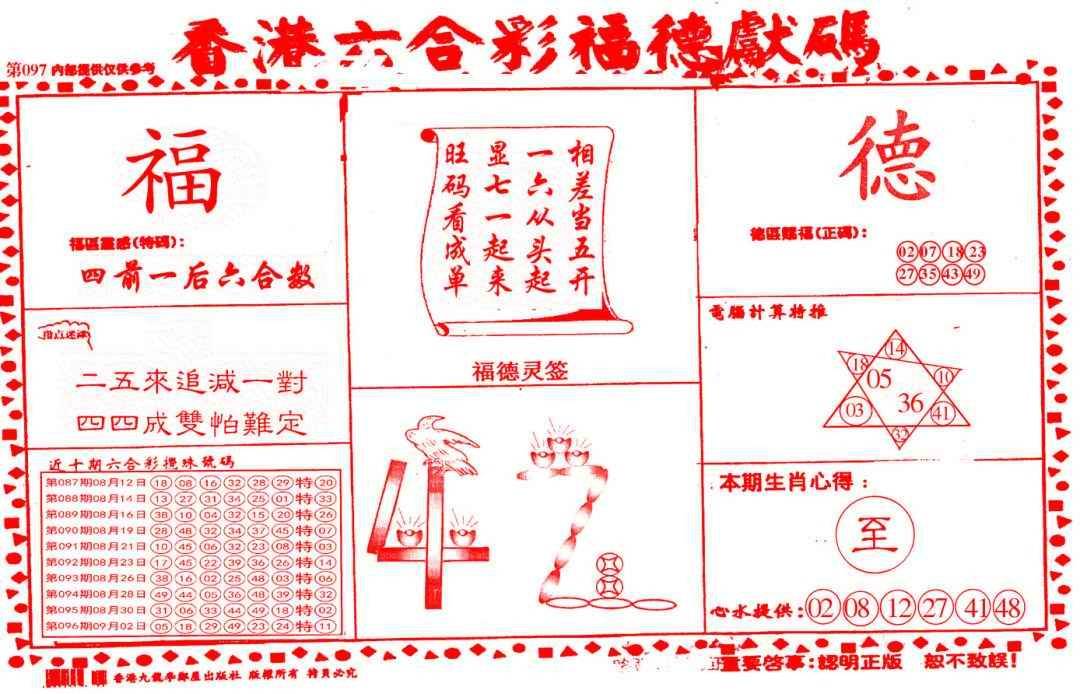 香港六合彩福德獻碼
第097 内部提供仅供参考
福
福區靈感(特碼):
四前一后六合数
指点迷津
二五來追減一對
四四成雙怕難定
近十期六合彩攪珠號碼
第087期08月12日 18 08 16 32 28 29 特 20
第088期08月14日 13 27 31 34 25 01 特 33
第089期08月16日 38 10 04 32 15 20 特 26
第090期08月19日 28 48 32 34 37 45 特 07
第091期08月21日 10 45 06 32 23 08 特 03
第092期08月23日 17 45 22 39 36 26 特 14
第093期08月26日 38 16 02 25 48 03 特 06
第094期08月28日 49 44 05 36 48 39 特 32
第095期08月30日 31 06 33 44 49 18 特 02
第096期09月02日 05 18 29 49 23 24 特 11
相差当五开
一六从头起
显七一起来
旺码看成单
福德灵签
42
德
德區賜福(正碼):
02 07 18 23
27 35 43 49
電腦計算特推
14
18 10
05
36
03 41
32
本期生肖心得:
至
心水提供: 02 08 12 27 41 48
香港九龍 出版社 版權所有 特員必究
重要啓事:認明正版 恕不致誤!